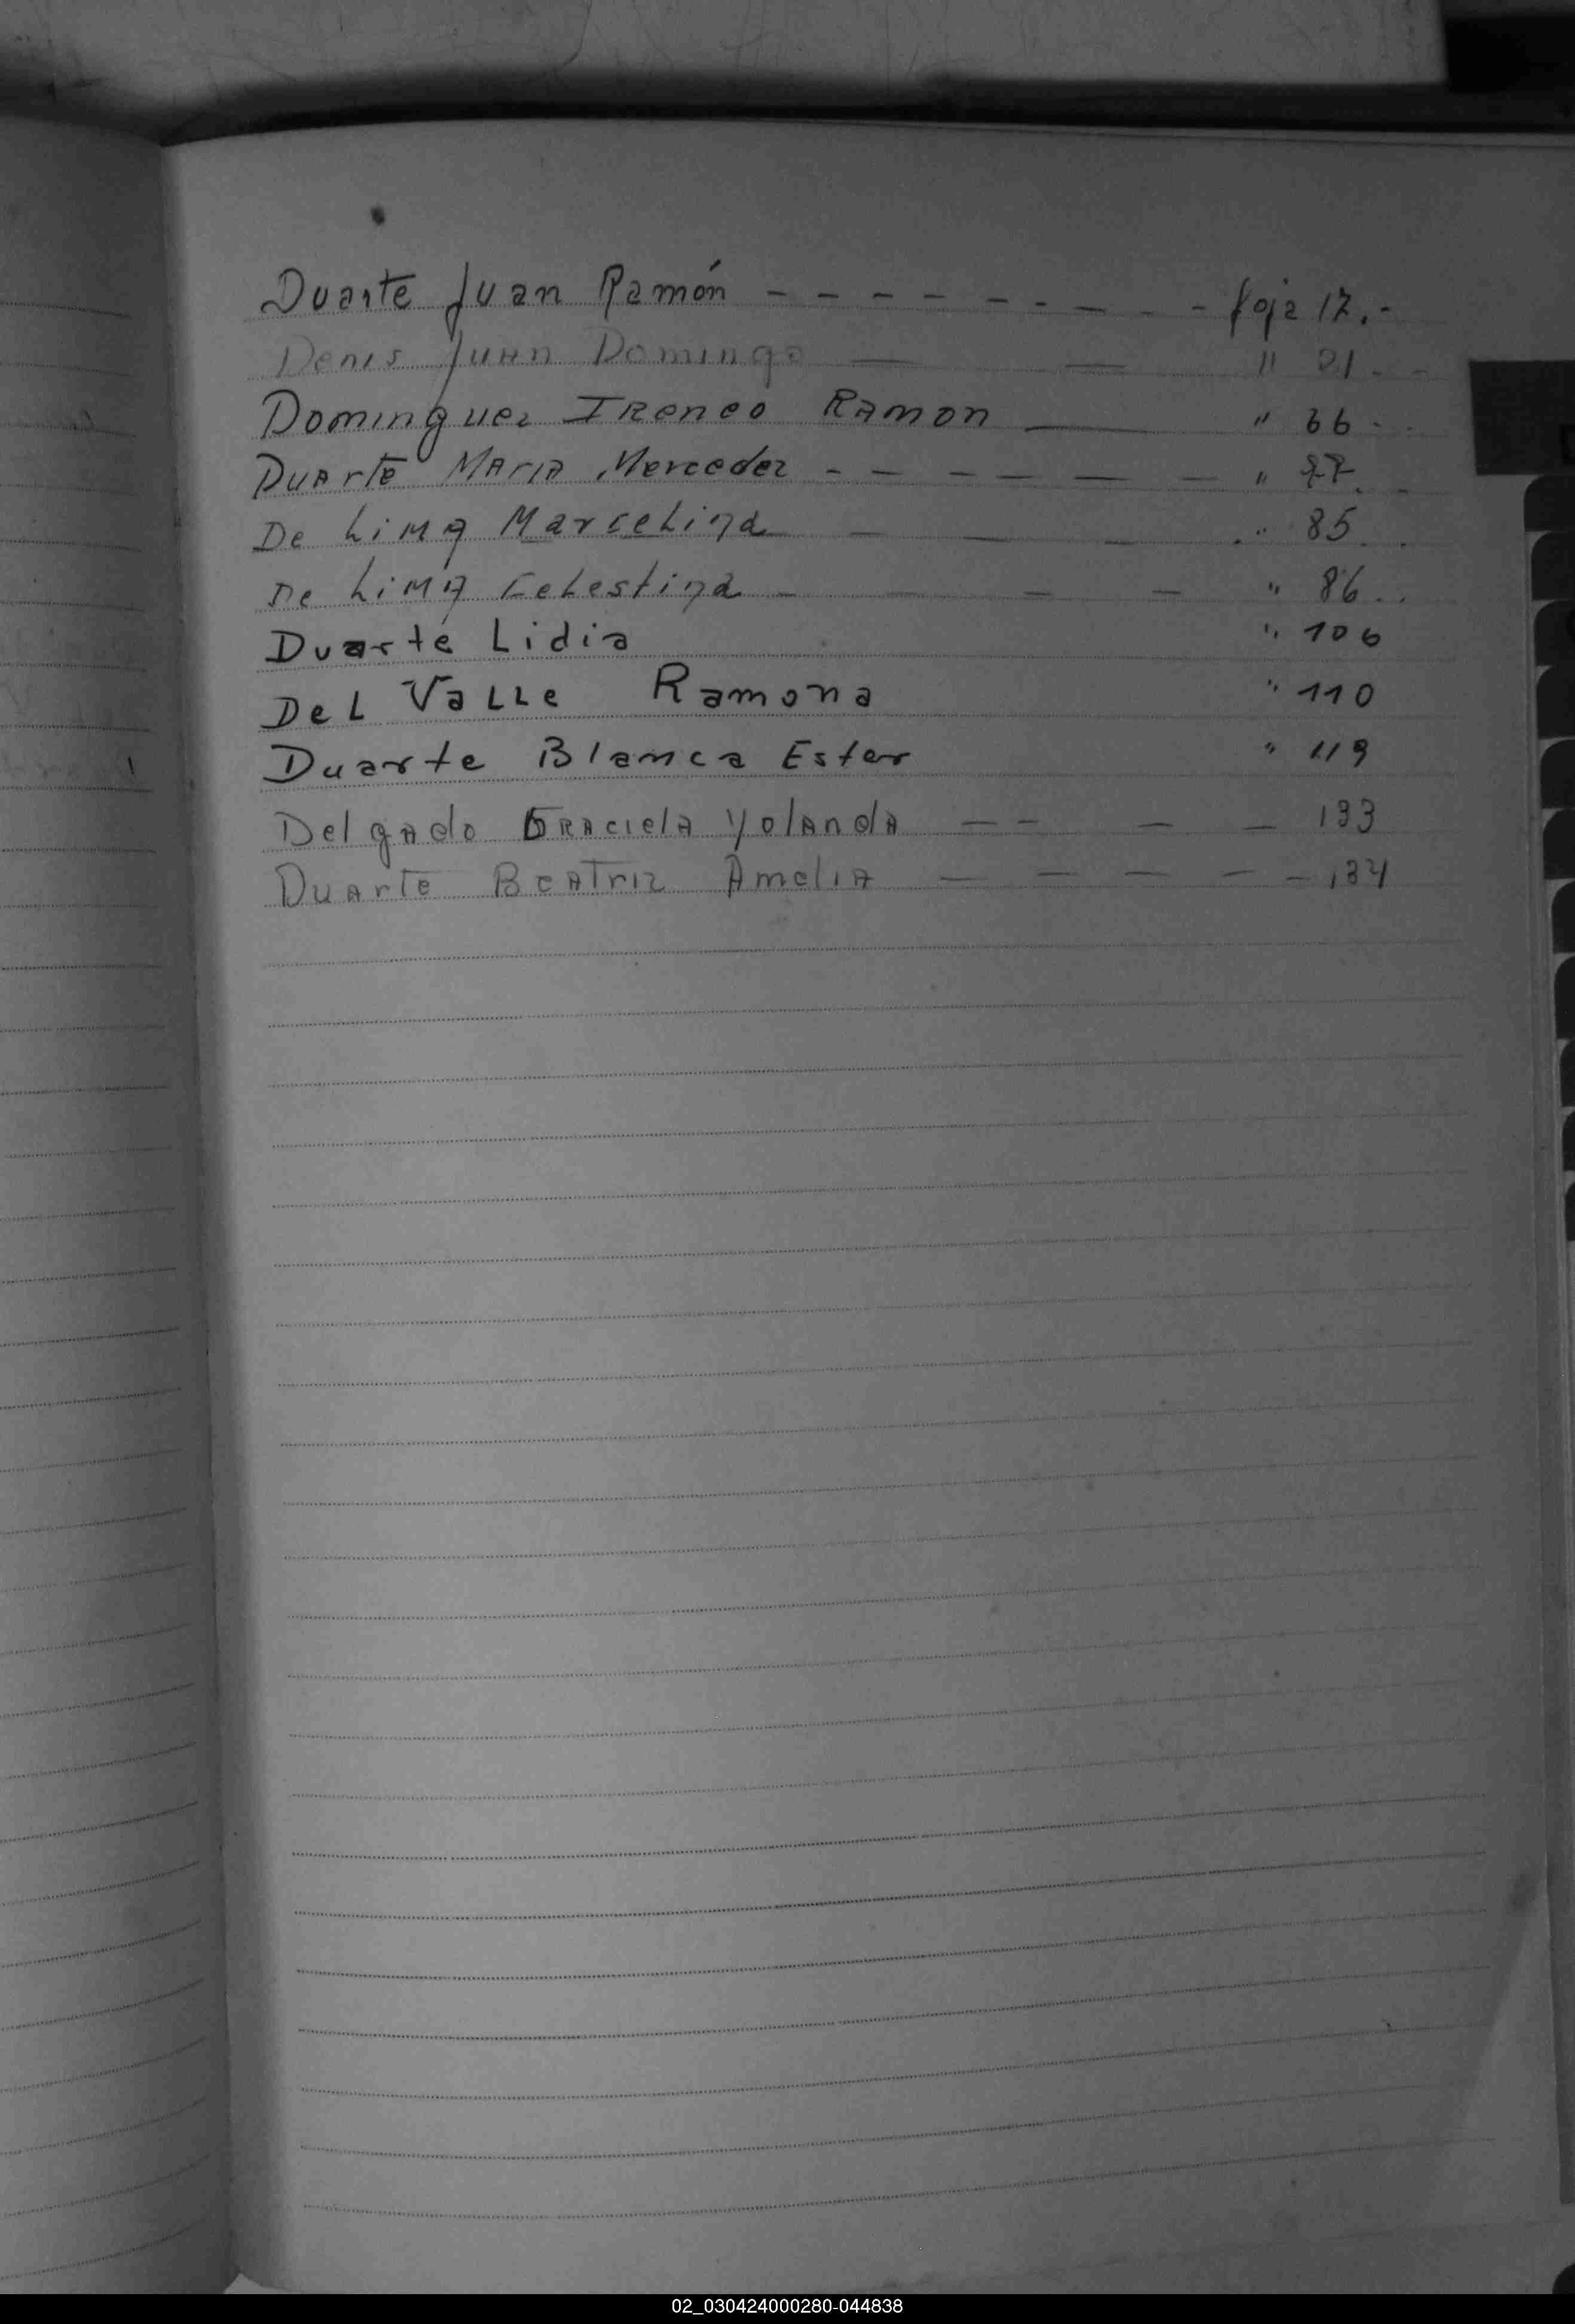 Duarte Juan Ramón - - - - - - - - - foja 17.-
Denis Juan Domingo — — " 21 . -
Dominguez Ireneo Ramon — " 66 - .
Duarte Maria Mercedez - - - - - - " 77. -
De Lima Marcelina — — — " 85 . .
De Lima Celestina - - - - " 86 . .
Duarte Lidia " 106
Del Valle Ramona " 110
Duarte Blanca Ester " 119
Delgado Graciela Yolanda — - — — 133
Duarte Beatriz Amelia — — — - - 134
02_030424000280-044838